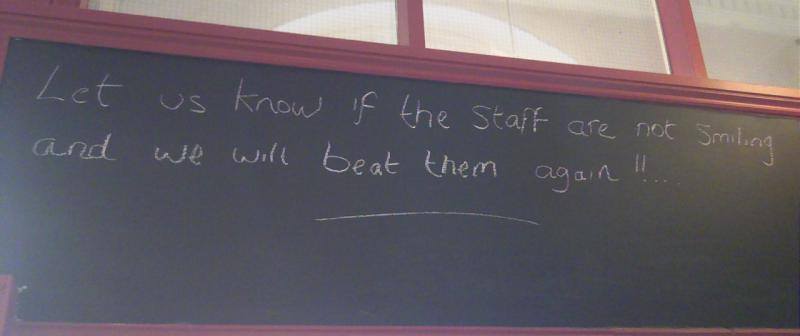 Let us know if the staff are not smiling
and we will beat them again!!....